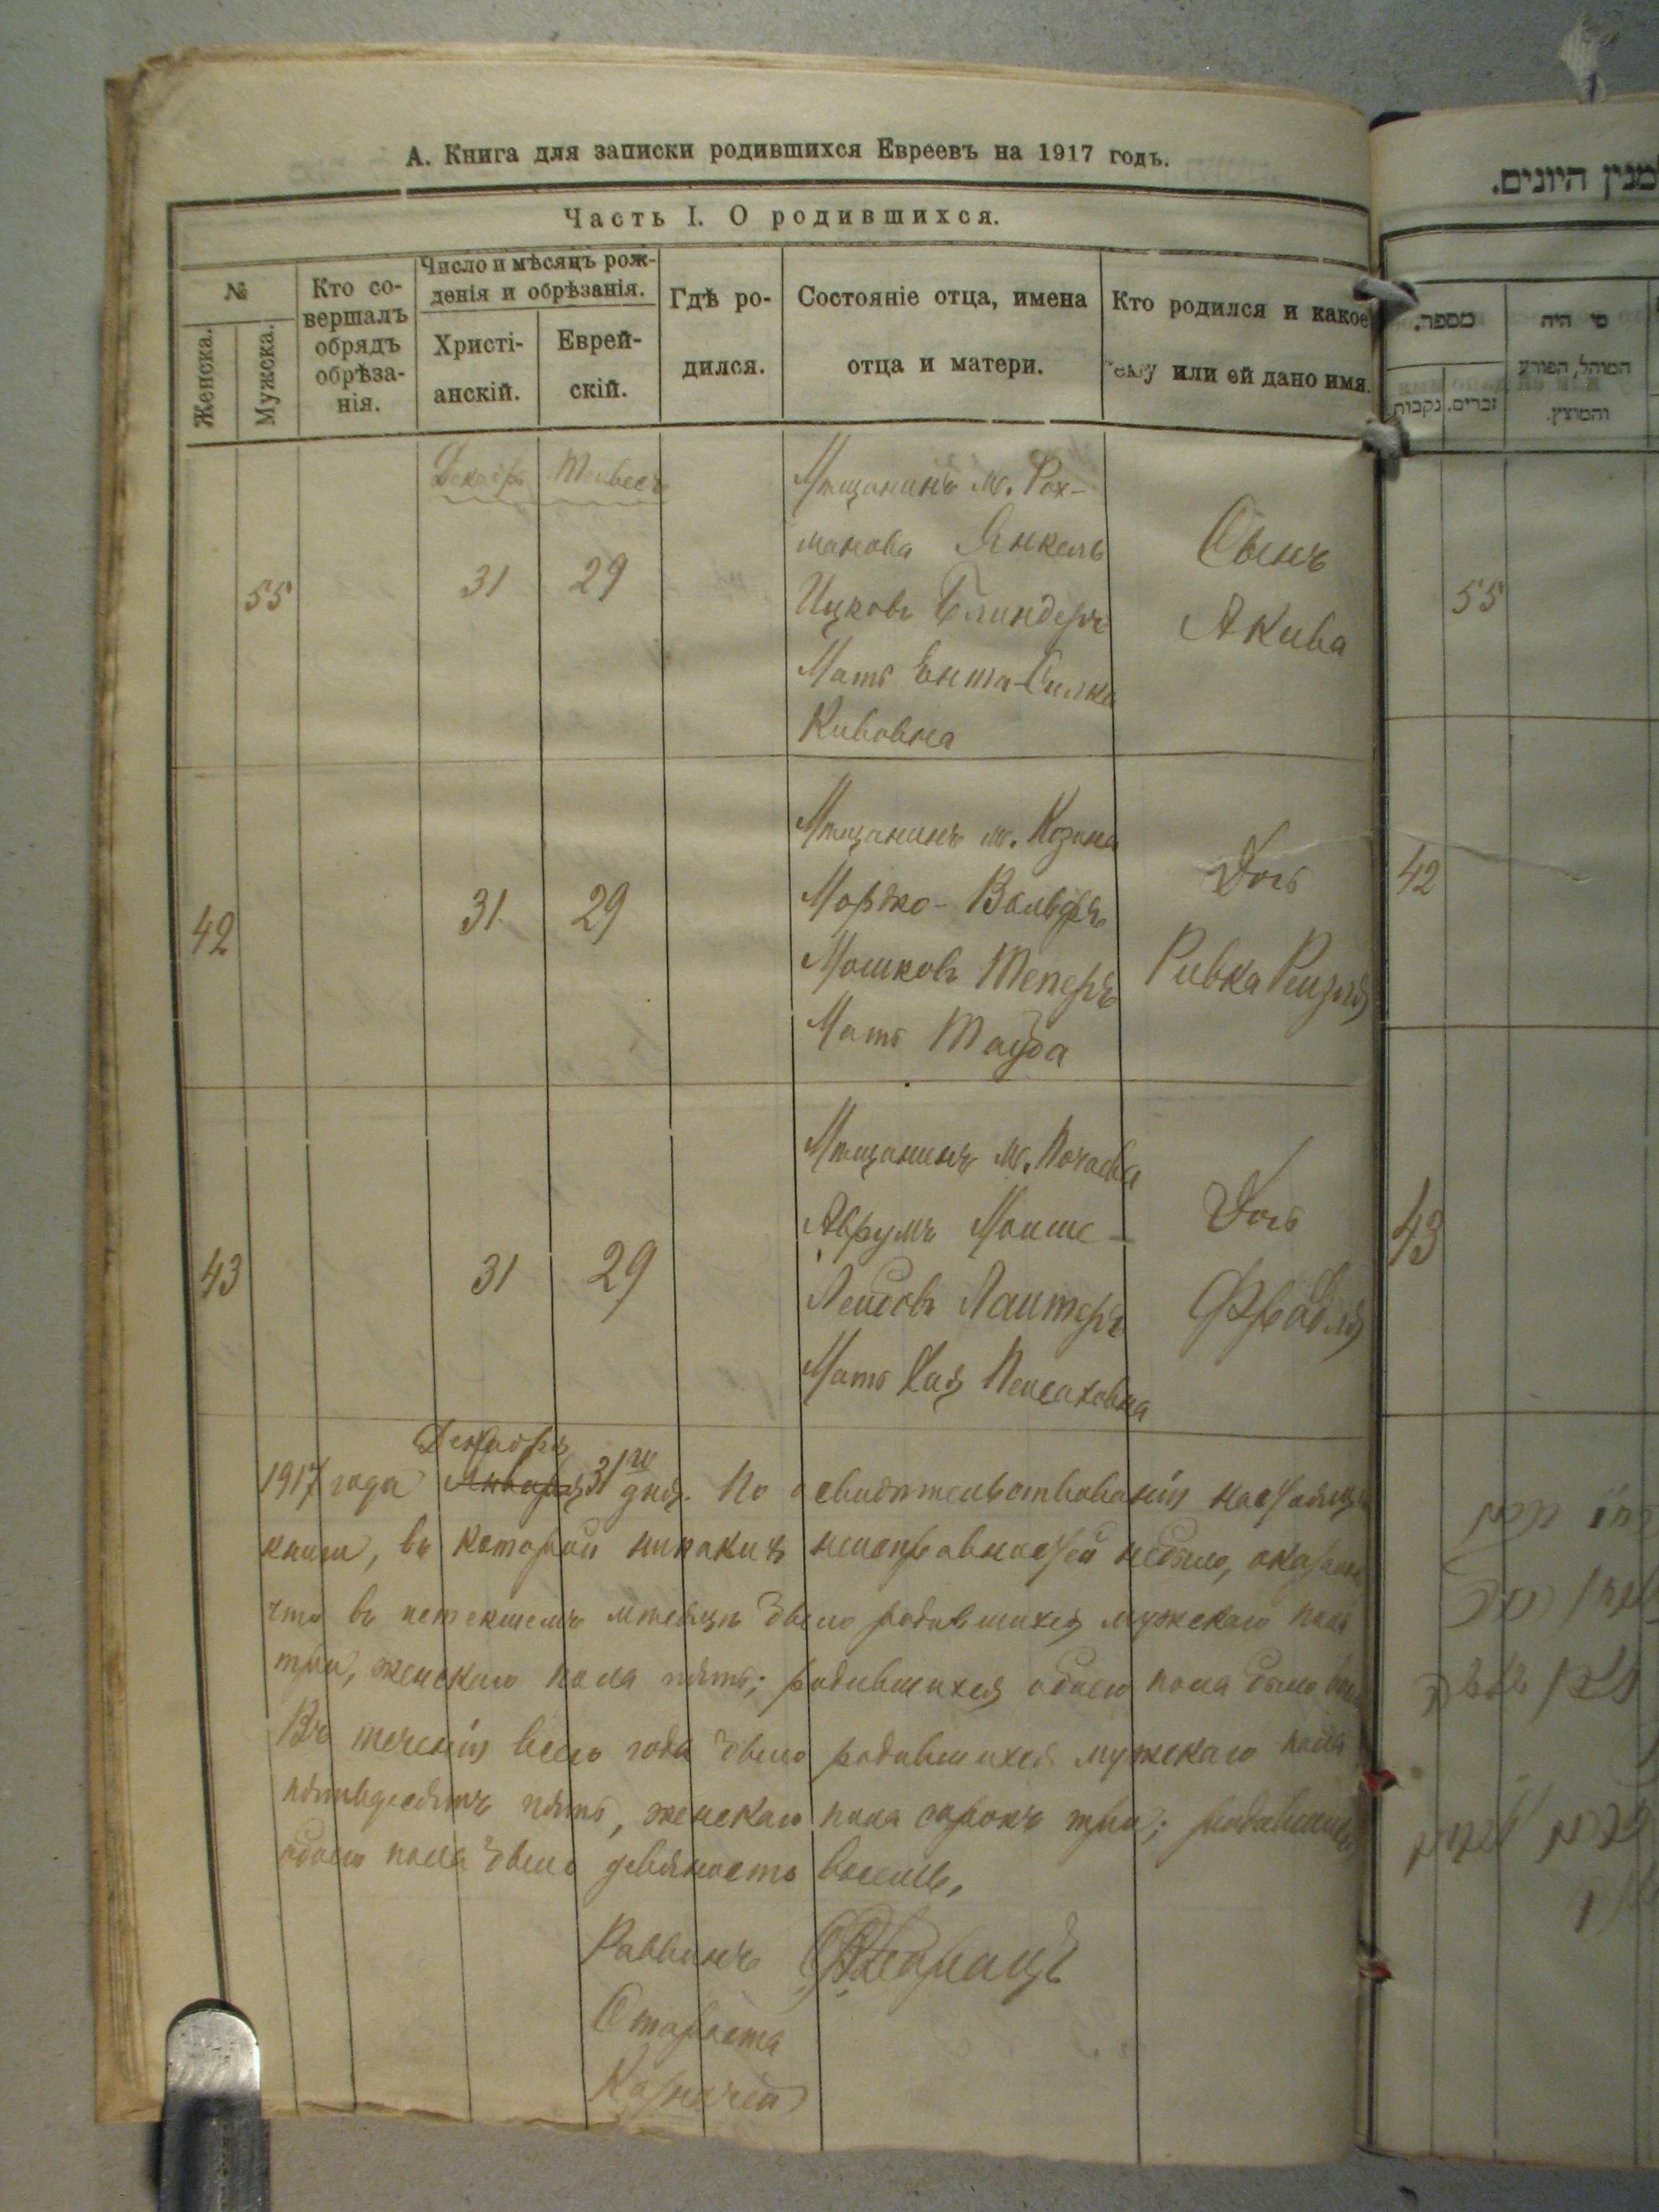 А. Книга для записки родившихся Евреевъ на 1917 годъ.
Часть I. О родившихся.
№
Женска.
Мужска.
Кто со-
вершалъ
обрядъ
обрѣза-
нія.
Число и мѣсяцъ рож-
денія и обрѣзанія.
Христі-
анскій.
Еврей-
скій.
Гдѣ ро-
дился.
Состояніе отца, имена
отца и матери.
Кто родился и какое
ему или ей дано имя.
Декабрь Тейвесъ
55
31
29
Мѣщанинъ м. Рох-
манова Янкель
Ицковъ Блиндеръ
Мать Ента-Силка
Кивовна
Сынъ
Акива
42
31
29
Мѣщанинъ м. Козина
Мордко-Вольфъ
Мошковъ Теперъ
Мать Тауба
Дочь
Ривка Рейзля
43
31
29
Мѣщанинъ м. Почаева
Аврумъ Мойше-
Лейбовъ Лантеръ
Мать Хая Пейсаховна
Дочь
Фрейдля
Декабря
1917 года Января 31го дня. По освидѣтельствованіи настоящей
книги, въ которой никакихъ неисправностей небыло, оказалось
что въ истекшемъ мѣсяцѣ было родившихся мужскаго пола
три, женскаго пола пять; родившихся обоего пола было
Въ теченіи всего года было родившихся мужскаго пола
пятьдесятъ пять, женскаго пола сорокъ три; родившихся
обоего пола было девяносто восемь.
Раввинъ
Староста
Казначей
למנין היונים.
מספר.
נקבות.
זכרים.
מי היה
המוהל, הפורע
והמוצץ.
55
42
43